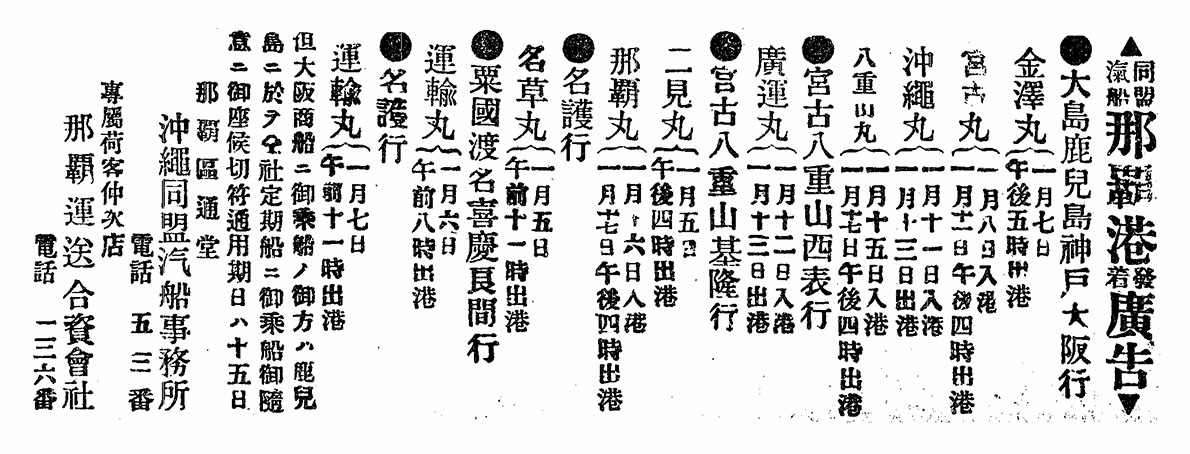 ▲同盟汽船那覇港發着廣告▼
●大島鹿兒島神戸大阪行
金澤丸 一月七日
午後五時出港
宮古丸 一月八日入港
一月十一日午後四時出港
沖繩丸 一月十一日入港
一月十三日出港
八重山丸 一月十五日入港
一月十七日午後四時出港
●宮古八重山西表行
廣運丸 一月十二日入港
一月十三日出港
●宮古八重山基隆行
二見丸 一月五日
午後四時出港
那覇丸 一月十六日入港
一月十七日午後四時出港
●名護行
名草丸 一月五日
午前十一時出港
●粟國渡名喜慶良間行
運輸丸 一月六日
午前八時出港
●名護行
運輸丸 一月七日
午前十一時出港
但大阪商船ニ御乘船ノ御方ハ鹿兒
島ニ於テ仝社定期船ニ御乘船御隨
意ニ御座候切符通用期日ハ十五日
那覇區通堂
沖繩同盟汽船事務所
電話 五三番
專屬荷客仲次店
那覇運送合資會社
電話 一三六番